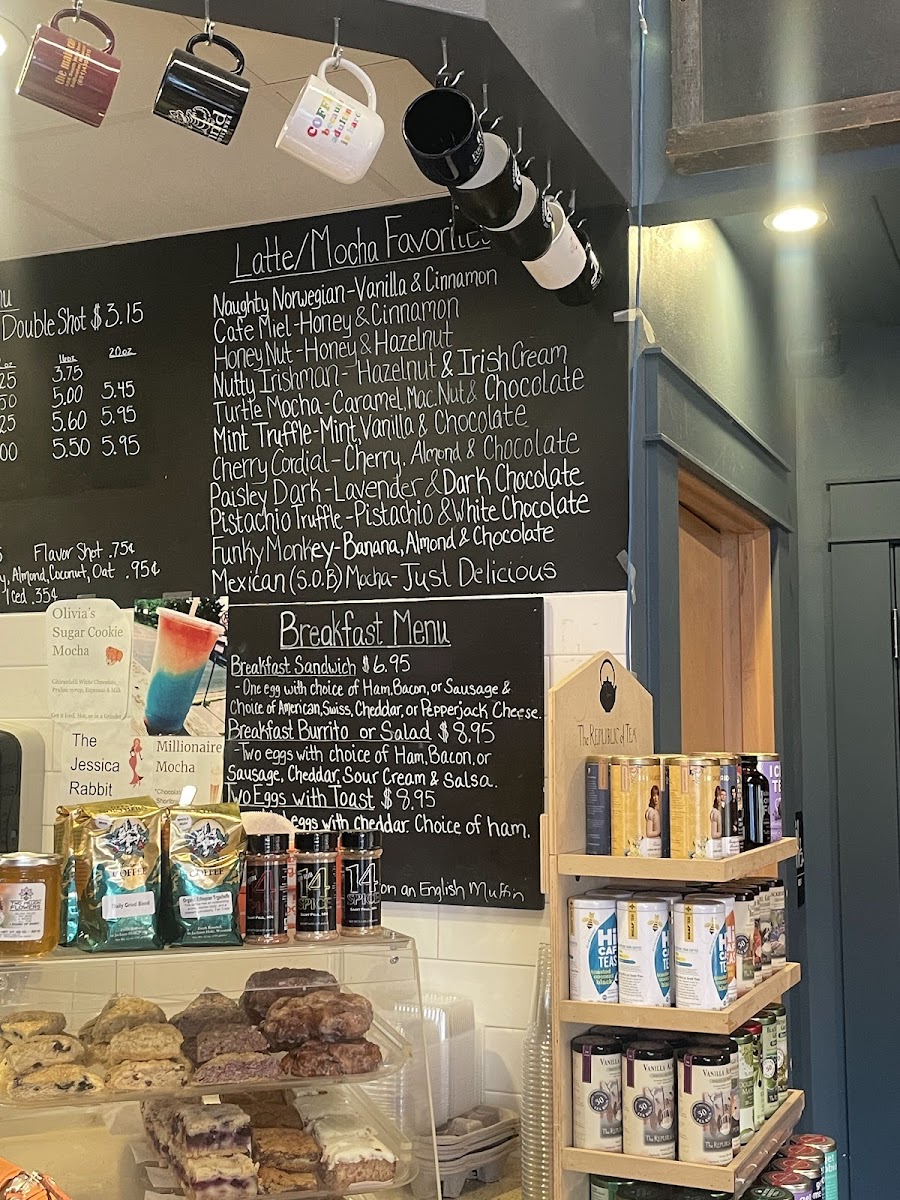 the
COFFEE
because
adulting
is hard
Latte/Mocha Favorites
Naughty Norwegian - Vanilla & Cinnamon
Cafe Miel - Honey & Cinnamon
Honey Nut - Honey & Hazelnut
Nutty Irishman - Hazelnut & Irish Cream
Turtle Mocha - Caramel, Mac. Nut & Chocolate
Mint Truffle - Mint, Vanilla & Chocolate
Cherry Cordial - Cherry, Almond & Chocolate
Paisley Dark - Lavender & Dark Chocolate
Pistachio Truffle - Pistachio & White Chocolate
Funky Monkey - Banana, Almond & Chocolate
Mexican (S.O.B) Mocha - Just Delicious
Double Shot $3.15
16oz 20oz
3.75
5.00 5.45
5.60 5.95
5.50 5.95
Flavor Shot .75¢
Almond, Coconut, Oat .95¢
Iced .35¢
Olivia's
Sugar Cookie
Mocha
Ghirardelli White Chocolate,
The
Jessica
Rabbit
Millionaire
Mocha
Breakfast Menu
Breakfast Sandwich $6.95
- One egg with choice of Ham, Bacon, or Sausage &
Choice of American, Swiss, Cheddar, or Pepperjack Cheese.
Breakfast Burrito or Salad $8.95
- Two eggs with choice of Ham, Bacon, or
Sausage, Cheddar, Sour Cream & Salsa.
Two Eggs with Toast $8.95
eggs with Cheddar. Choice of ham,
on an English Muffin
The REPUBLIC of TEA
COFFEE
Daily Grind Blend
COFFEE
14
SPICE
14
SPICE
HiCAF
TEAS
HiCAF
TEAS
HiCAF
TEAS
VANILLA
50
VANILLA
50
VANILLA
50